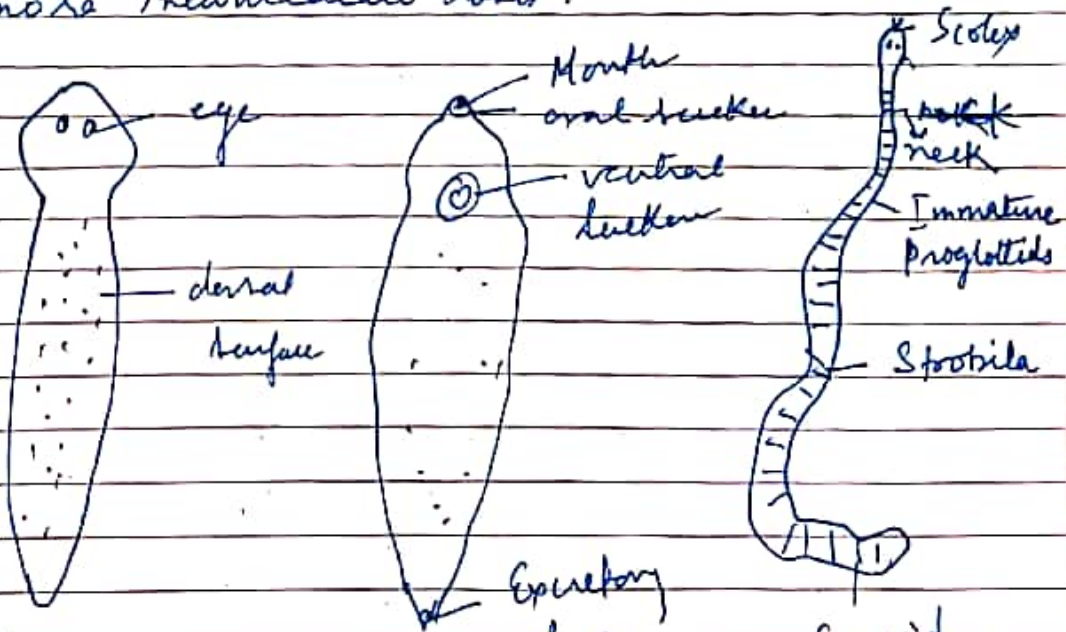 eye
dorsal
surface
Mouth
oral sucker
ventral
sucker
Excretory
Scolex
neck
Immature
Proglottids
Strobila